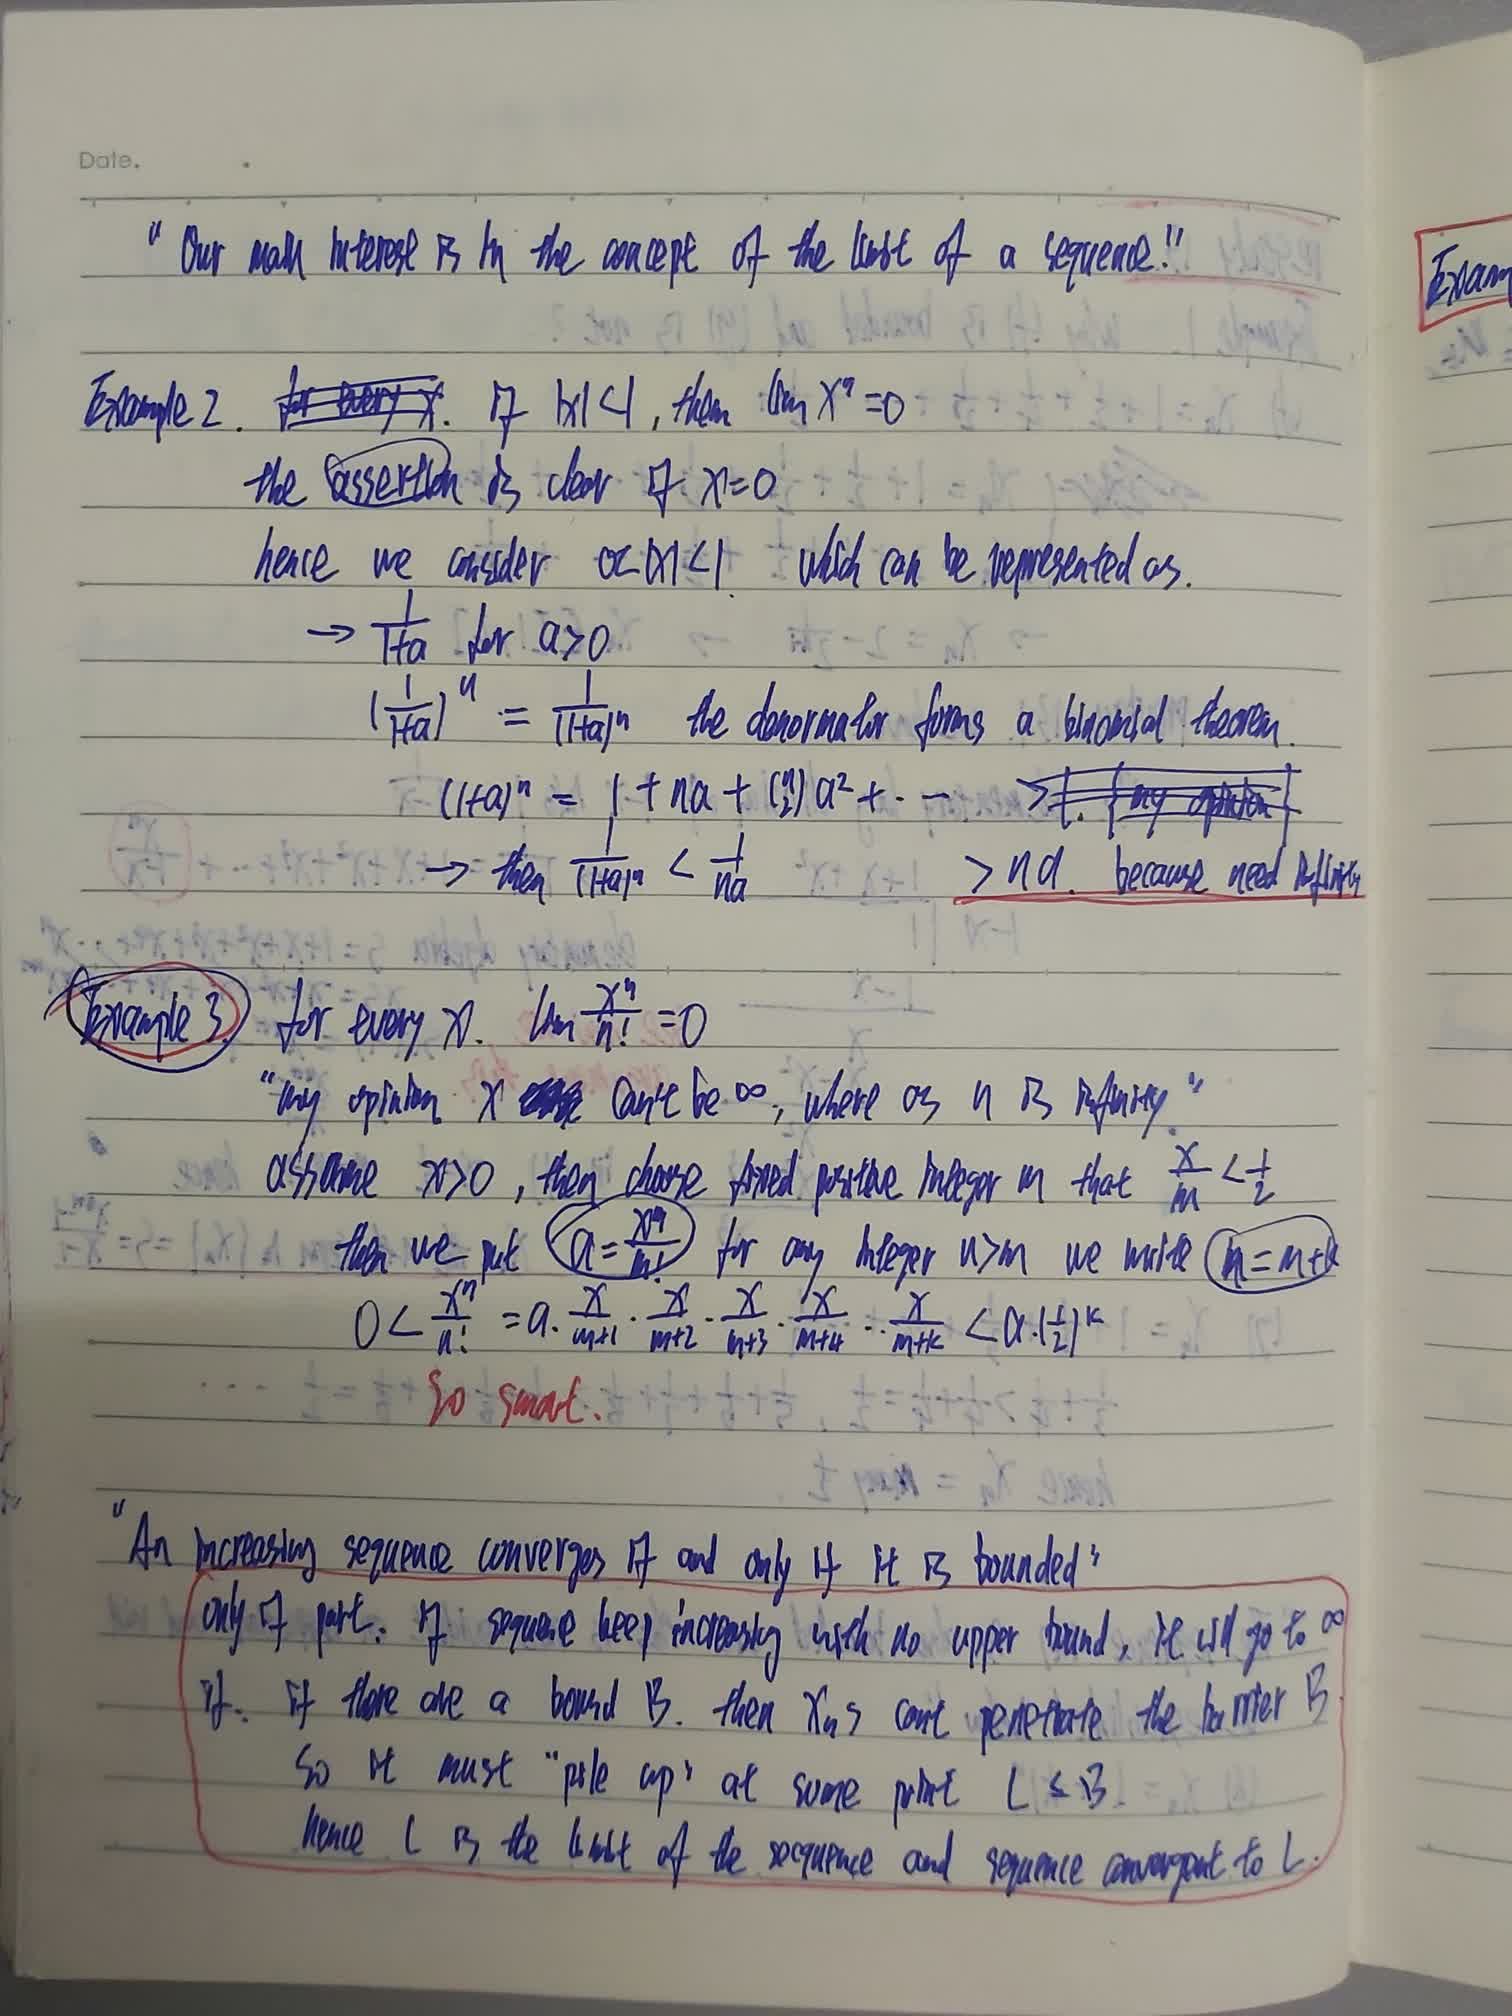 Date.
"Our main interest is in the concept of the limit of a sequence!!
Example 2. for every x. If |x|<1, then lim xⁿ=0
the assertion is clear if x=0
hence we consider 0<|x|<1. which can be represented as.
→ 1/(1+a) for a>0
(1/(1+a))ⁿ = 1/(1+a)ⁿ the denormator forms a binomial theorem.
(1+a)ⁿ = 1 + na + (n 2)a² + ··· >1. {my opinion}
→ then 1/(1+a)ⁿ < 1/na > na. because need infinity
Example 3. for every x. lim xⁿ/n! =0
"my opinion x can't be ∞, where as n is infinity."
assume x>0, then choose fixed positive integer m that x/m < 1/2
then we put a = xᵐ/m! for any integer n>m we write n=m+k
0 < xⁿ/n! = a · x/(m+1) · x/(m+2) · x/(m+3) · x/(m+4) ·· x/(m+k) < a·(1/2)ᵏ
So smart.
"An increasing sequence converges if and only if it is bounded"
only if part. if sequence keep increasing with no upper bound, it will go to ∞
if. if there are a bound B. then xₙs can't penetrate the barrier B.
So it must "pile up" at some point L ≤ B
hence L is the limit of the secquence and sequence convergent to L.
Exam